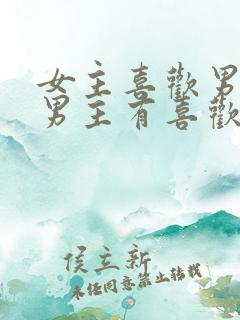 女主喜歡男
男主有喜歡
侯立新
未经同意禁止转载